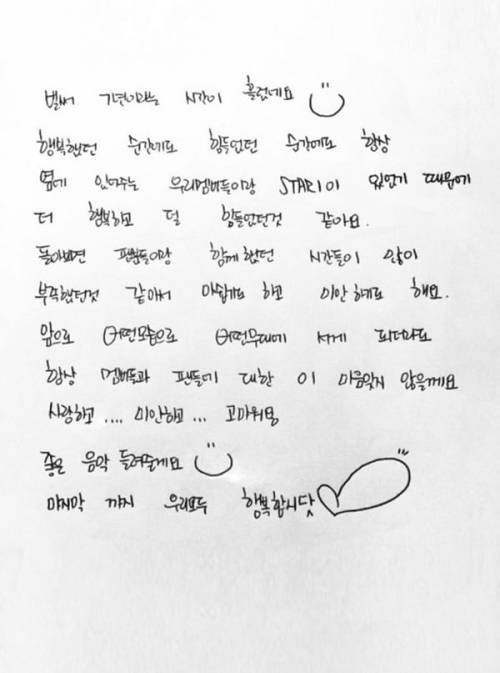 벌써 7년이라는 시간이 흘렀네요
행복했던 순간에도 힘들었던 순간에도 항상
옆에 있어주는 우리멤버들이랑 STAR1이 있었기 때문에
더 행복하고 덜 힘들었던것 같아요.
돌아보면 팬분들이랑 함께했던 시간들이 많이
부족했던것 같아서 아쉽기도 하고 미안하기도 해요.
앞으로 어떤모습으로 어떤무대에 서게 되더라도
항상 멤버들과 팬들에 대한 이 마음잊지 않을게요
사랑하고 .... 미안하고 ... 고마워요
좋은 음악 들려줄게요
마지막 까지 우리모두 행복합시닷